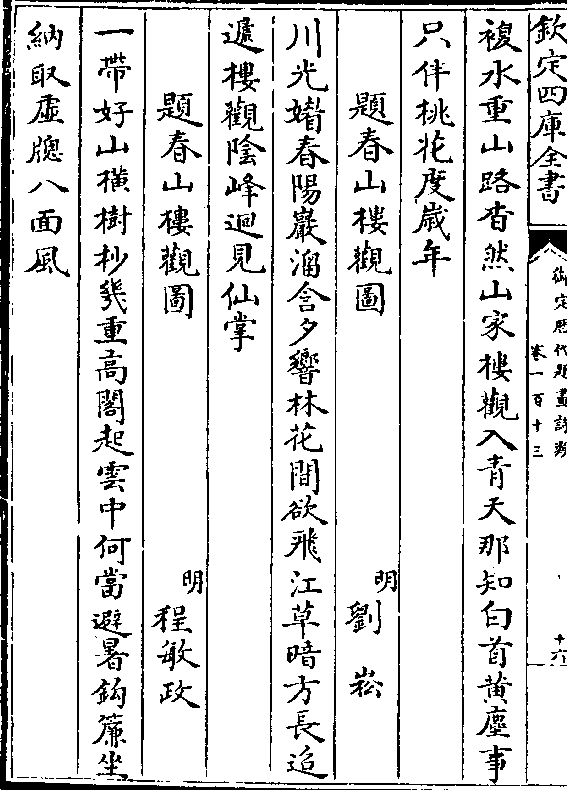 欽定四庫全書
御定歷代題畫詩類
卷一百十三
十六
複水重山路杳然山家樓觀入青天那知白首黄塵事
只伴桃花度歳年
題春山樓觀圖
明
劉崧
川光媚春陽巖溜含夕響林花間欲飛江草暗方長迢
遞樓觀陰峰迴見仙掌
題春山樓觀圖
明
程敏政
一帶好山横樹杪幾重高閣起雲中何當避暑鈎簾坐
納取虚牕八面風